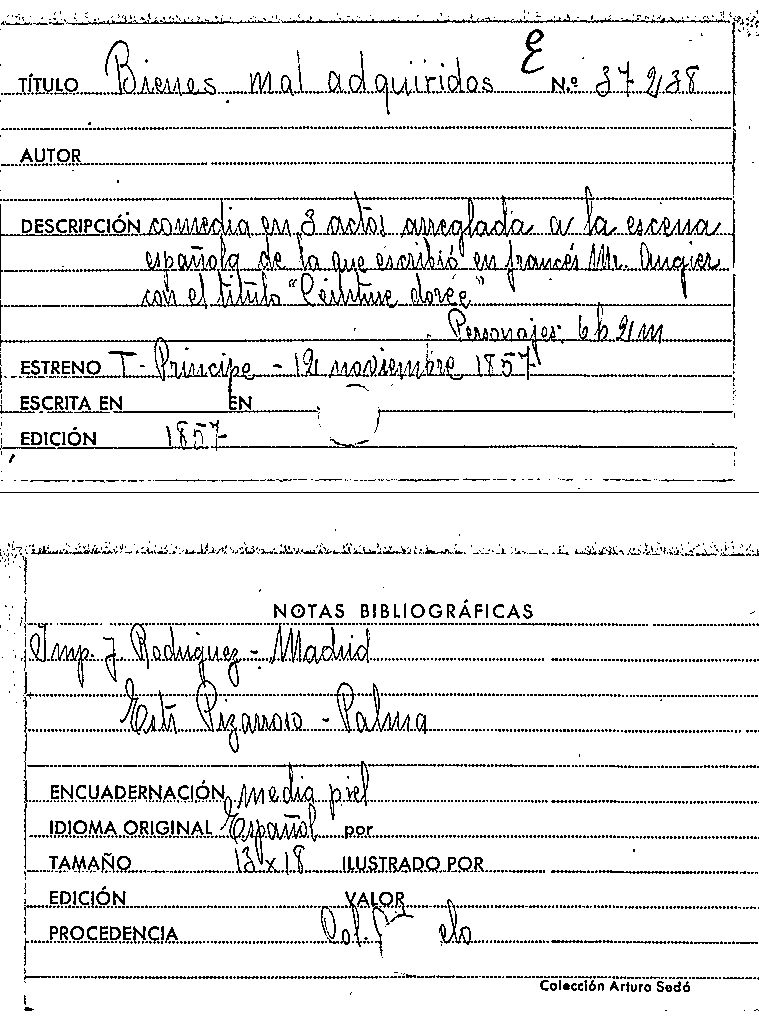 E
TÍTULO Bienes mal adquiridos N.º 37238
AUTOR
DESCRIPCIÓN comedia en 3 actos arreglada a la escena
española de la que escribió en francés Mr. Augier
con el título "Ceinture dorée"
Personajes: 6h 2m
ESTRENO T- Principe - 12 noviembre 1857
ESCRITA EN EN
EDICIÓN 1857
NOTAS BIBLIOGRÁFICAS
Imp. J. Rodriguez - Madrid
Pizarroso - Palma
ENCUADERNACIÓN media piel
IDIOMA ORIGINAL Español por
TAMAÑO 13 x 18 ILUSTRADO POR
EDICIÓN VALOR
PROCEDENCIA Col.
Colección Arturo Sedó